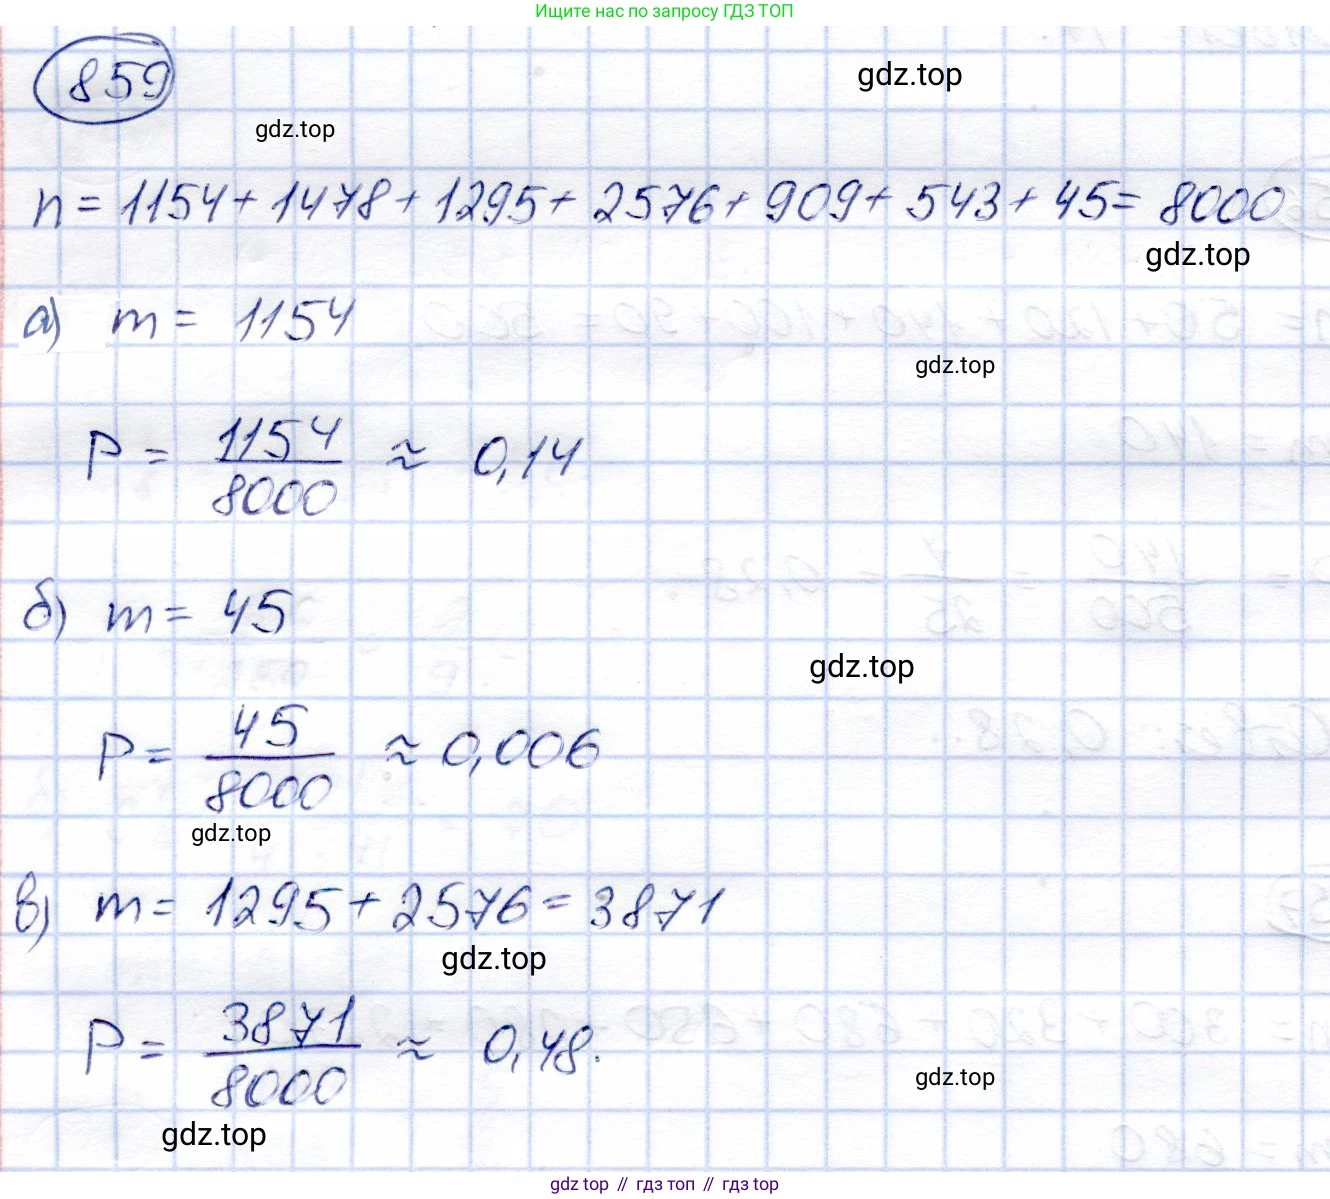 Ищите нас по запросу ГДЗ ТОП
859
gdz.top
gdz.top
n = 1154 + 1478 + 1295 + 2576 + 909 + 543 + 45 = 8000
gdz.top
а) m = 1154
gdz.top
P = 1154/8000 ≈ 0,14
б) m = 45
gdz.top
P = 45/8000 ≈ 0,006
gdz.top
в) m = 1295 + 2576 = 3871
gdz.top
P = 3871/8000 ≈ 0,48.
gdz.top
gdz.top
gdz top // гдз топ // гдз top